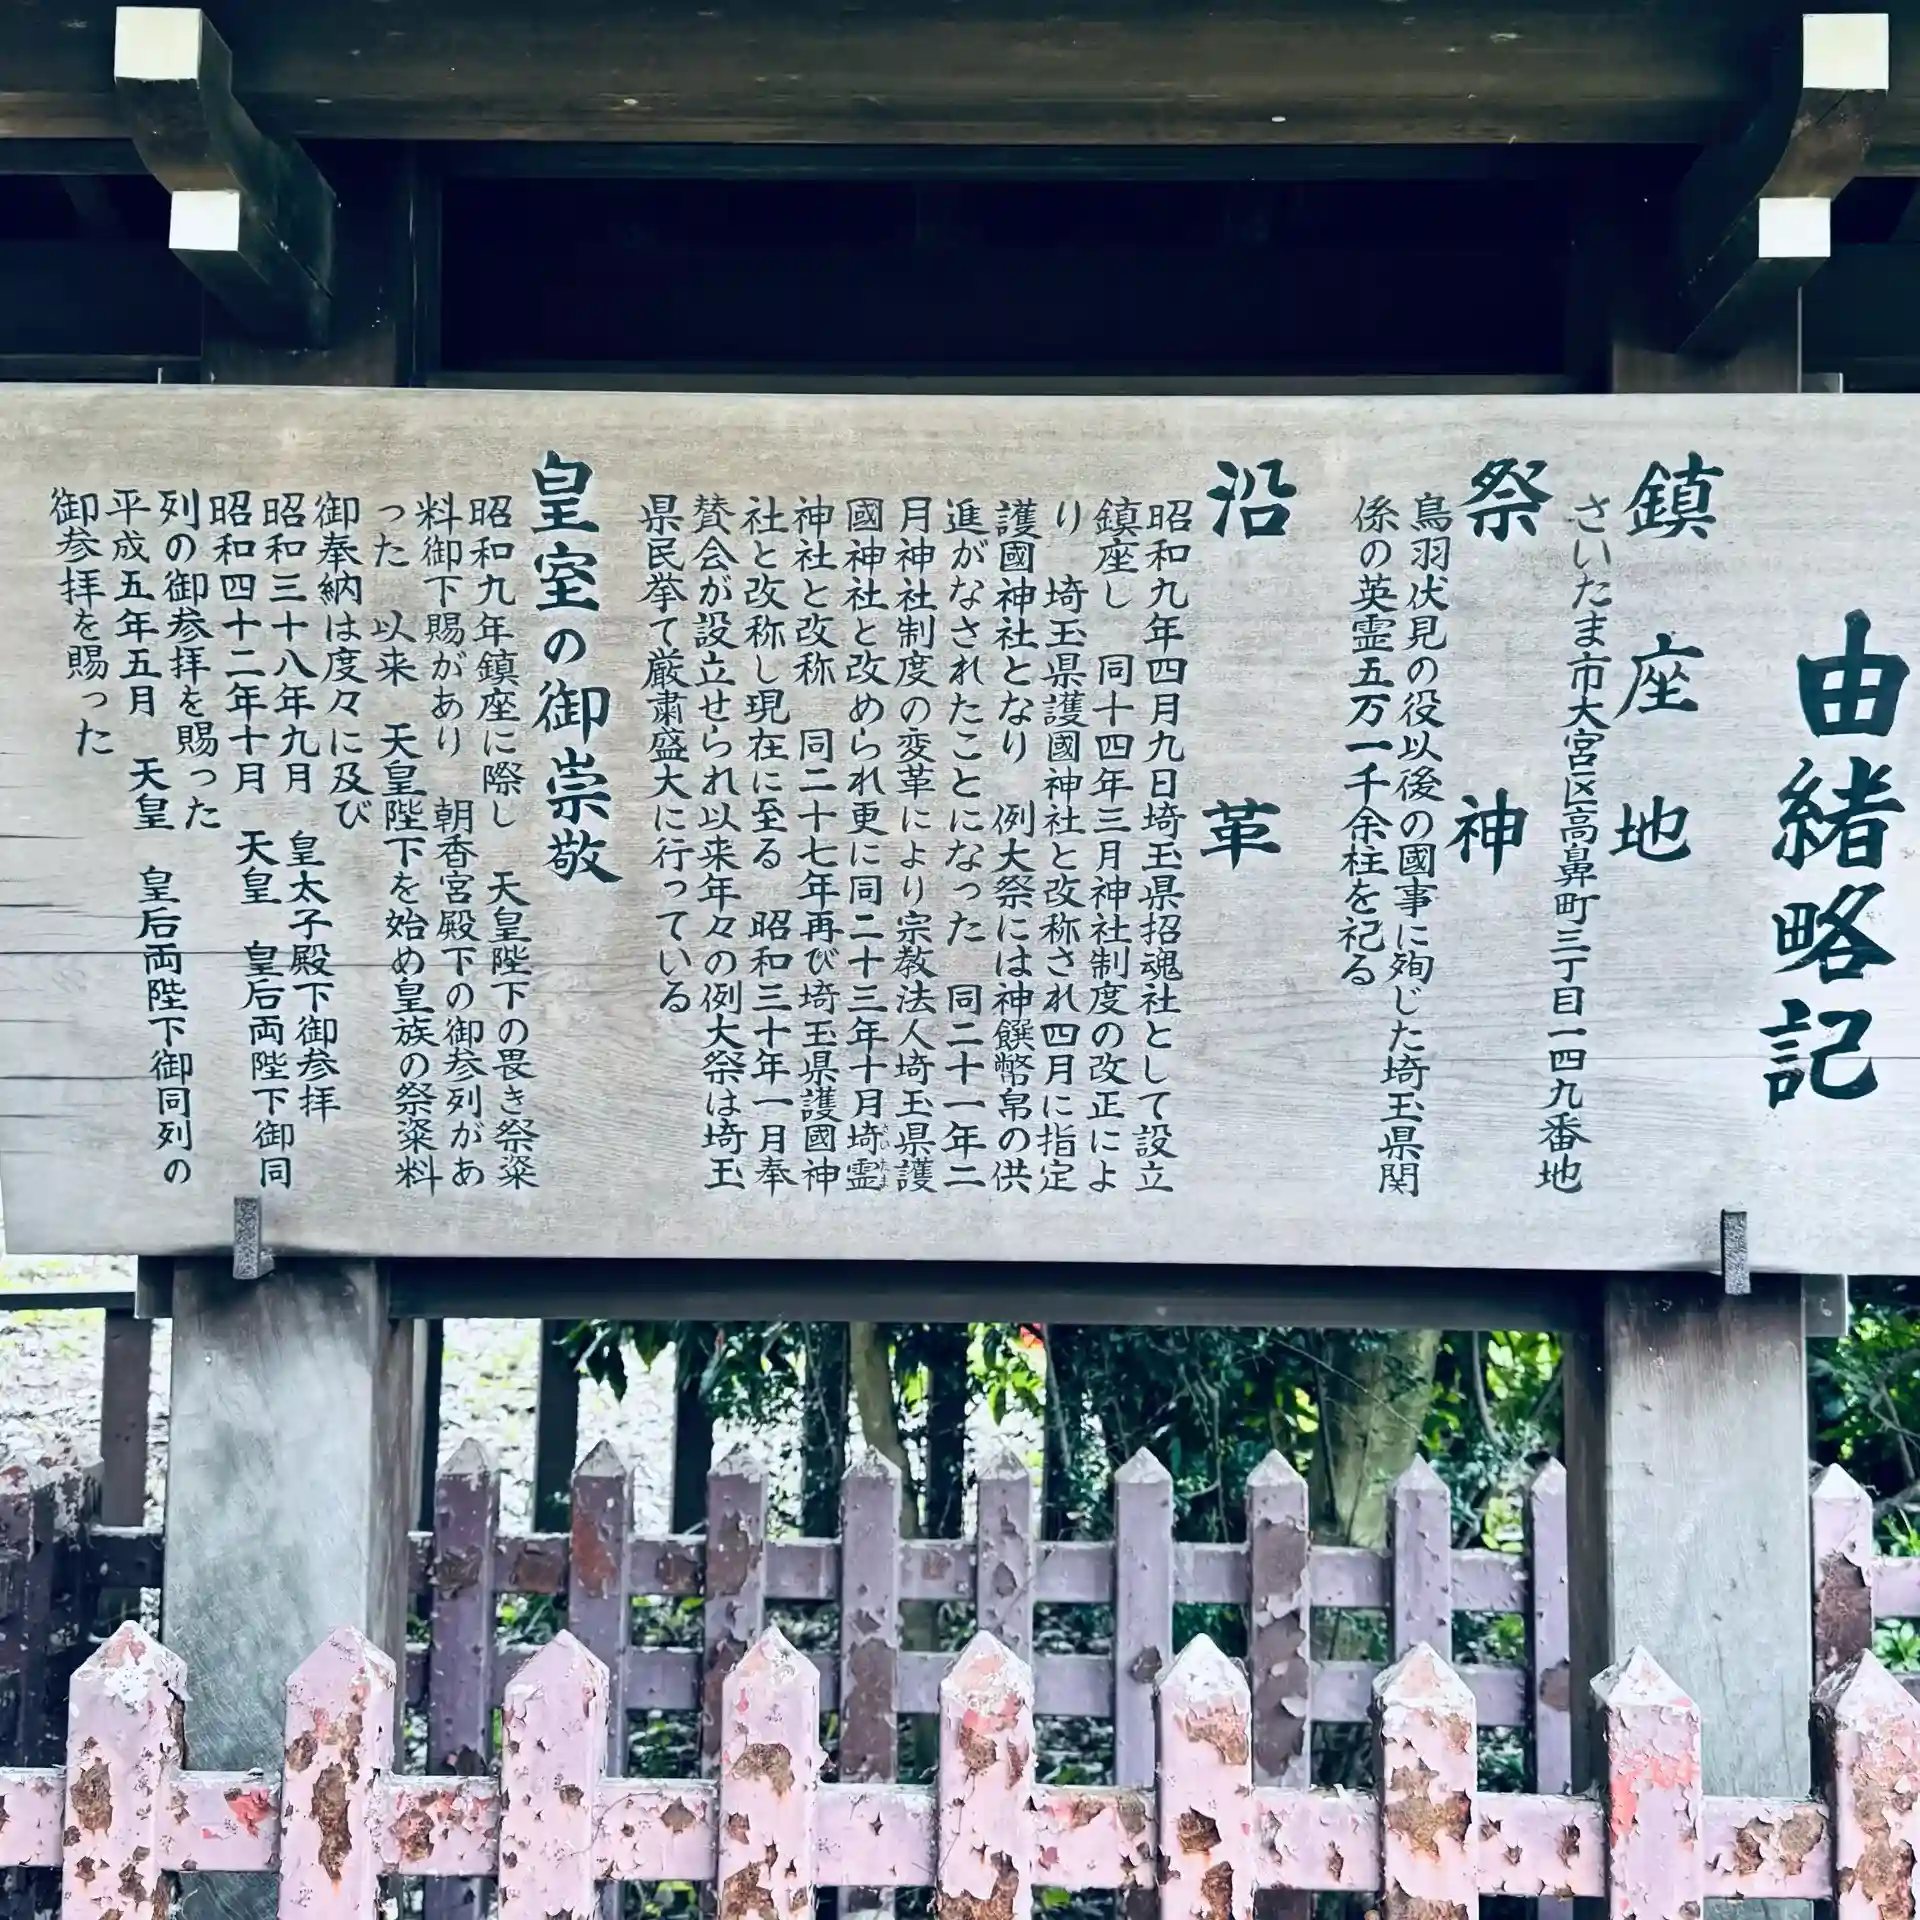 由緒略記
鎮座地
さいたま市大宮区高鼻町三丁目一四九番地
祭神
鳥羽伏見の役以後の國事に殉じた埼玉県関
係の英霊五万一千余柱を祀る
沿革
昭和九年四月九日埼玉県招魂社として設立
鎮座し 同十四年三月神社制度の改正によ
り 埼玉県護國神社と改称され四月に指定
護國神社となり 例大祭には神饌幣帛の供
進がなされたことになった 同二十一年二
月神社制度の変革により宗教法人埼玉県護
國神社と改められ更に同二十三年十月埼霊
さいたま
神社と改称 同二十七年再び埼玉県護國神
社と改称し現在に至る 昭和三十年一月奉
賛会が設立せられ以来年々の例大祭は埼玉
県民挙て厳粛盛大に行っている
皇室の御崇敬
昭和九年鎮座に際し 天皇陛下の畏き祭粢
料御下賜があり 朝香宮殿下の御参列があ
った 以来 天皇陛下を始め皇族の祭粢料
御奉納は度々に及び
昭和三十八年九月 皇太子殿下御参拝
昭和四十二年十月 天皇 皇后両陛下御同
列の御参拝を賜った
平成五年五月 天皇 皇后両陛下御同列の
御参拝を賜った